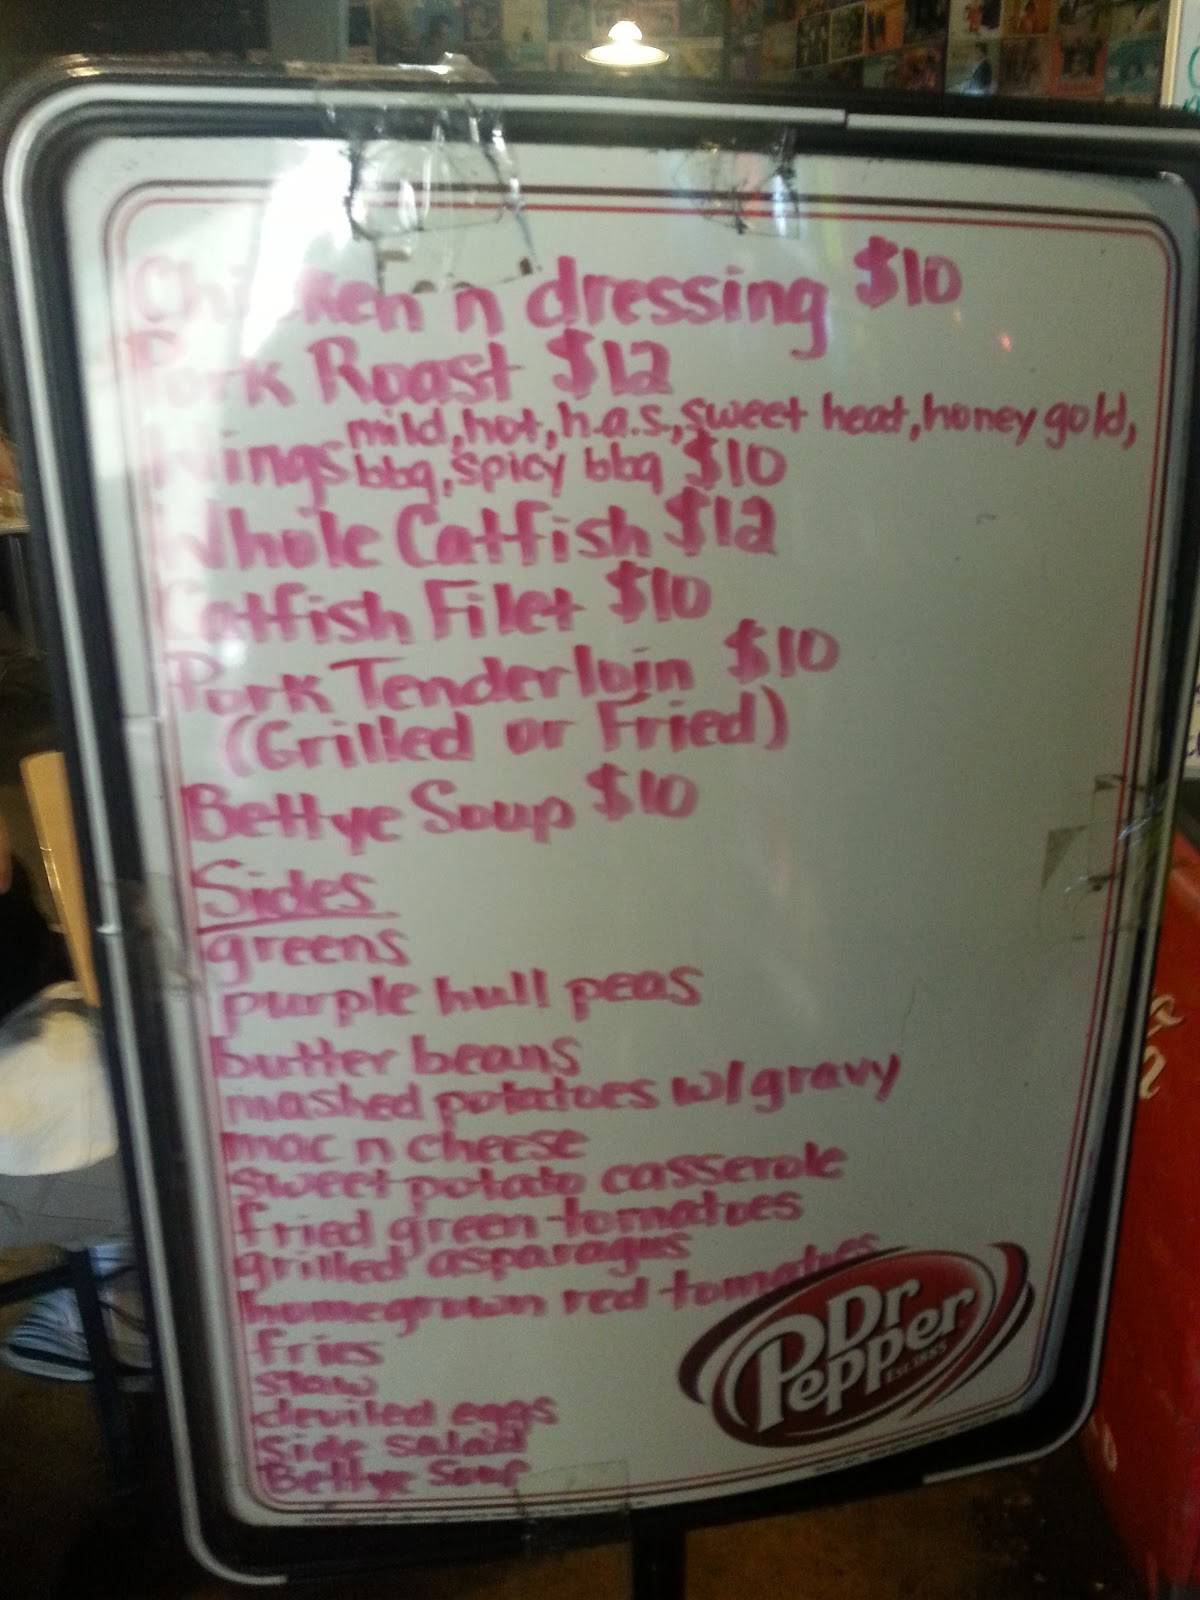 Chicken n dressing $10
Pork Roast $12
mild, hot, h.a.s., sweet heat, honey gold,
Wings bbq, spicy bbq $10
Whole Catfish $12
Catfish Filet $10
Pork Tenderloin $10
(Grilled or Fried)
Bettye Soup $10
Sides
greens
purple hull peas
butter beans
mashed potatoes w/gravy
mac n cheese
sweet potato casserole
fried green tomatoes
grilled asparagus
homegrown red tomatoes
fries
slaw
deviled eggs
side salad
Bettye Soup
Dr
Pepper
EST. 1885